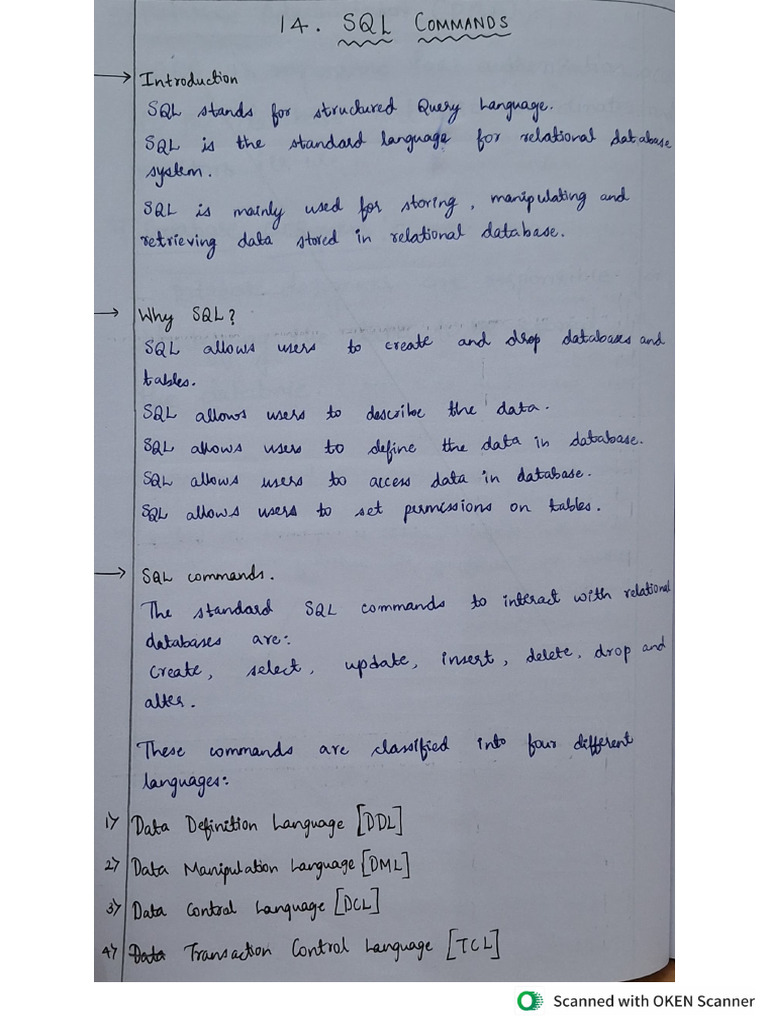 14. SQL COMMANDS
→ Introduction
SQL stands for structured Query Language.
SQL is the standard language for relational database
system.
SQL is mainly used for storing, manipulating and
retrieving data stored in relational database.
→ Why SQL?
SQL allows users to create and drop databases and
tables.
SQL allows users to describe the data.
SQL allows users to define the data in database.
SQL allows users to access data in database.
SQL allows users to set permissions on tables.
→ SQL commands.
The standard SQL commands to interact with relational
databases are:
create, select, update, insert, delete, drop and
alter.
These commands are classified into four different
languages:
1) Data Definition Language [DDL]
2) Data Manipulation Language [DML]
3) Data Control Language [DCL]
4) Data Transaction Control Language [TCL]
Scanned with OKEN Scanner